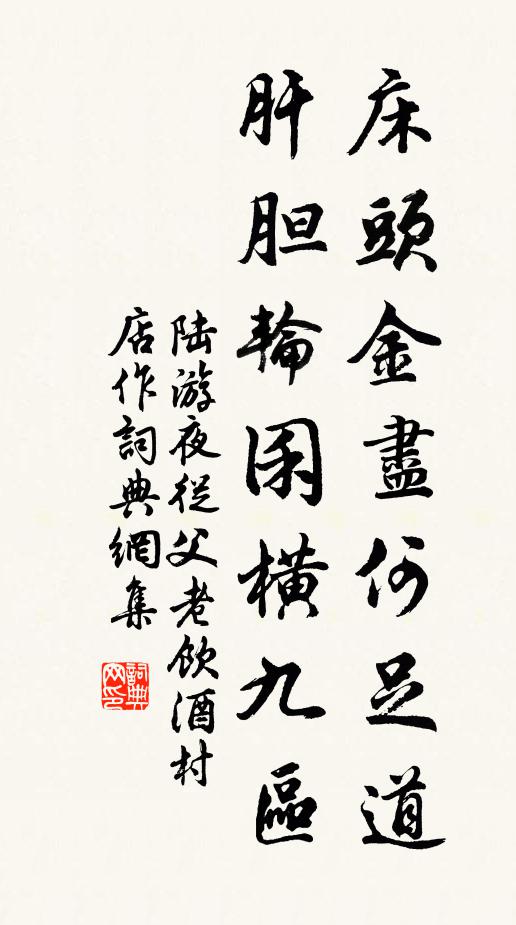 床頭金盡何足道
肝胆輪囷橫九區
陆游夜從父老飲酒村
店作詞典網集
詞典網印